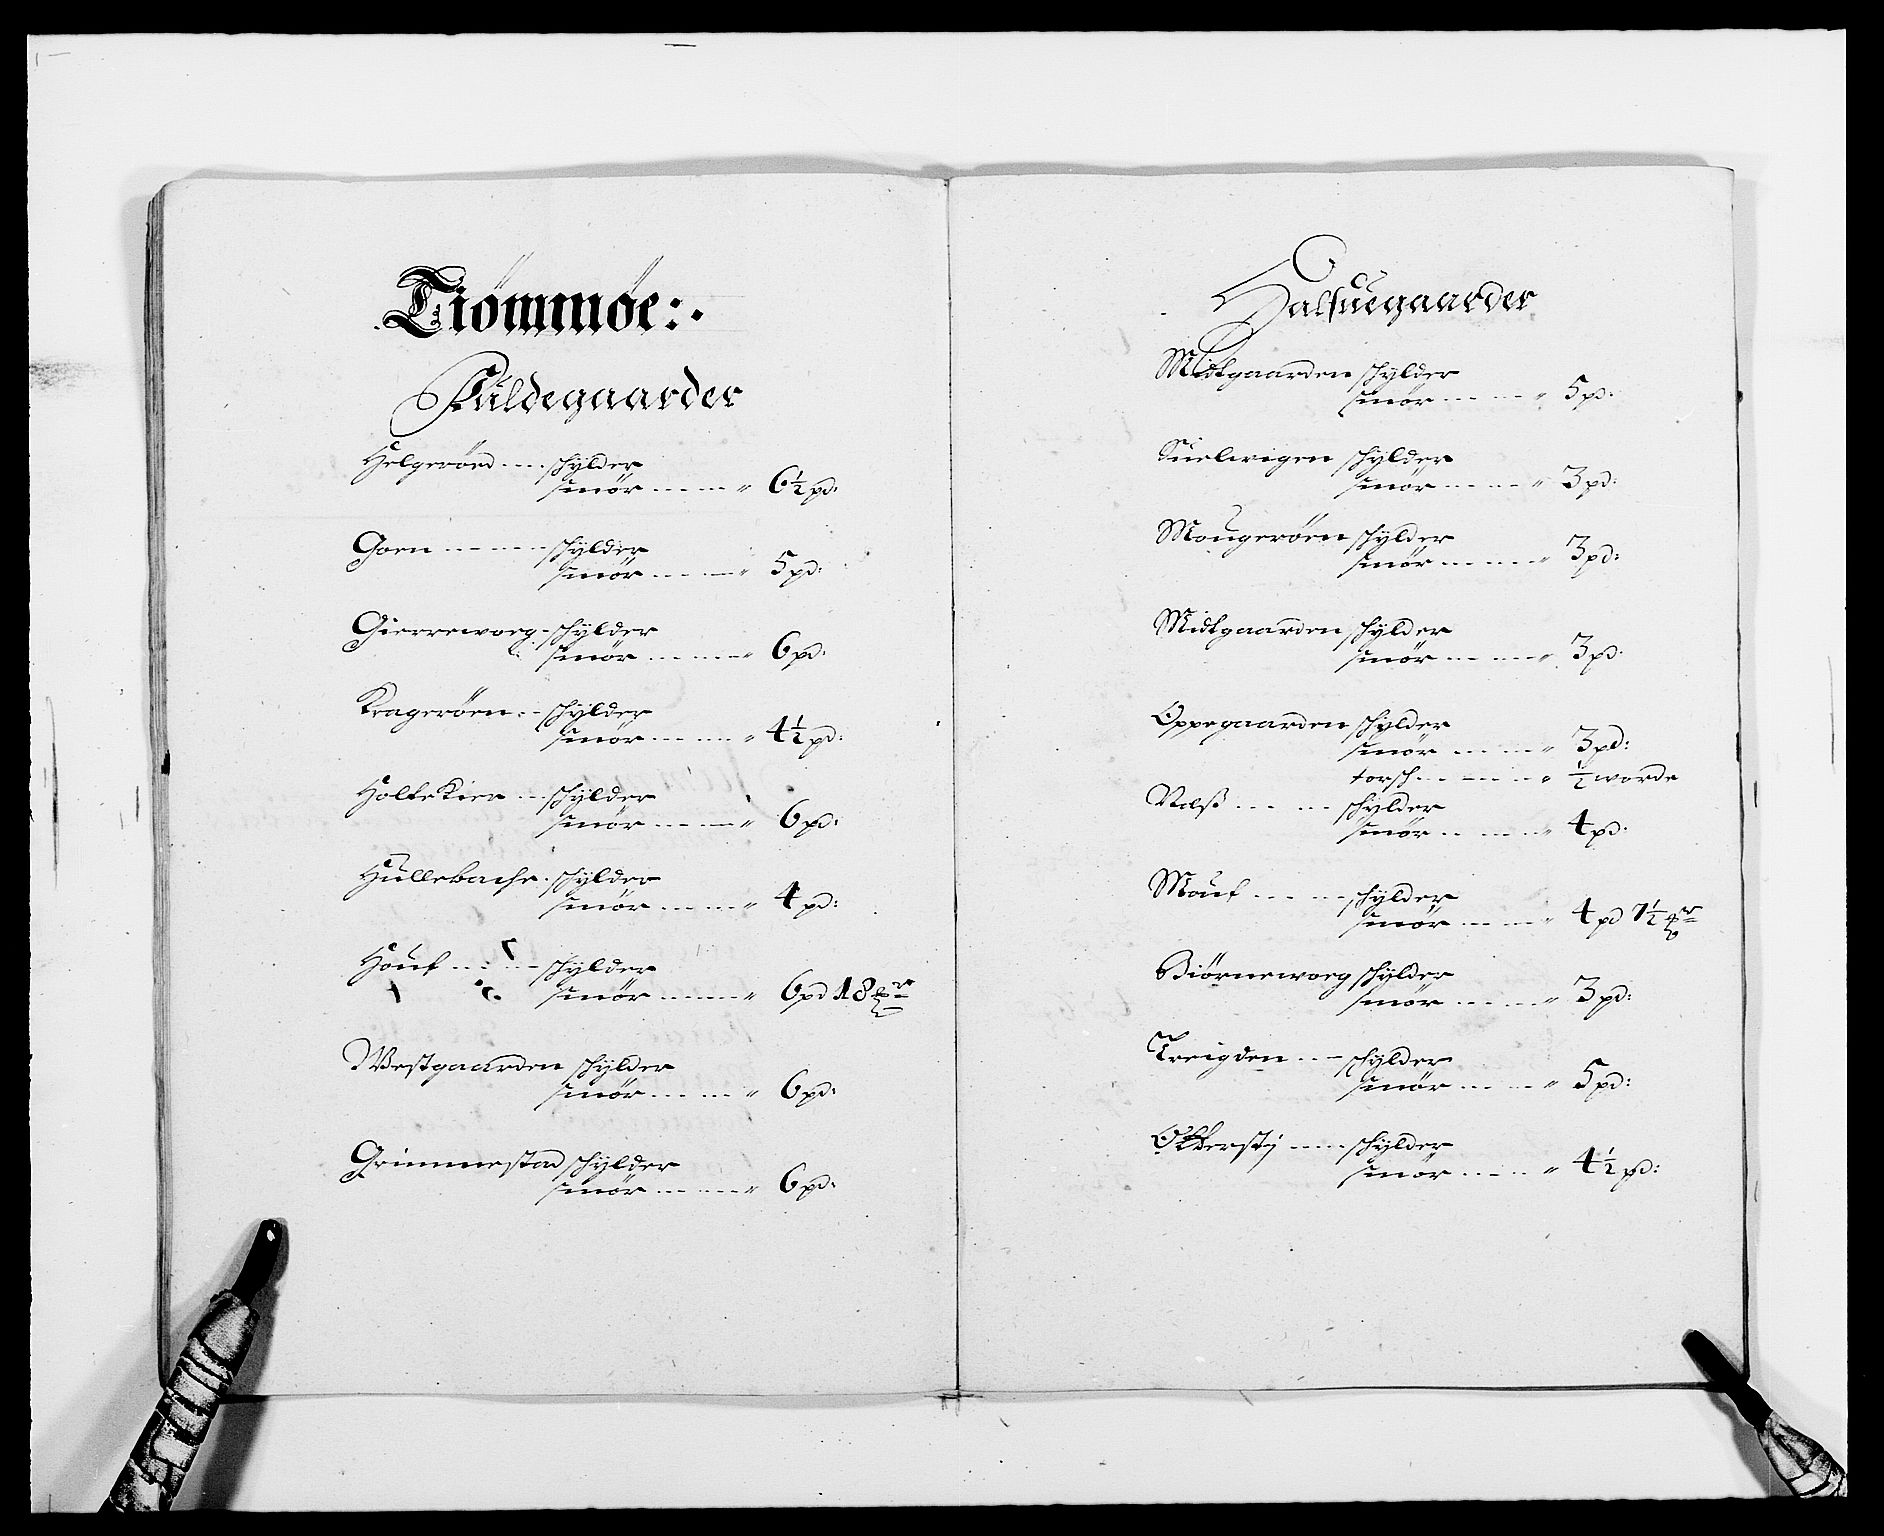 Tiömmöe:
Fuldegaarder
Helgeröed schylder
smör 6½ pd:
Goen schylder
smör 5 pd:
Gierrewoeg schylder
smör 6 pd:
Krageröen schylder
smör 4½ pd:
Holtekier schylder
smör 6 pd:
Hullebache schylder
smör 4 pd:
Houf schylder
smör 6 pd 18
Westgaarden schylder
smör 6 pd:
Grimmestad schylder
smör 6 pd:
Halfuegaarder
Midtgaarden schylder
smör 5 pd:
Suelwigen schylder
smör 3 pd:
Mougeröen schylder
smör 3 pd:
Midtgaarden schylder
smör 3 pd:
Oppegaarden schylder
smör 3 pd:
torsch ½ worde
schylder
smör 4 pd:
Mouf schylder
smör 4 pd 7½
Biörnewoeg schylder
smör 3 pd:
Treigden schylder
smör 5 pd:
Okkersty schylder
smör 4½ pd: